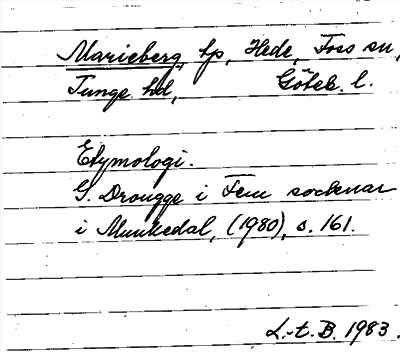 Marieberg, lp, Hede, Foss sn,
Tunge hd, Göteb. l.
Etymologi.
G. Drougge i Fem socknar
i Munkedal, (1980), s. 161.
L.-t. B. 1983.